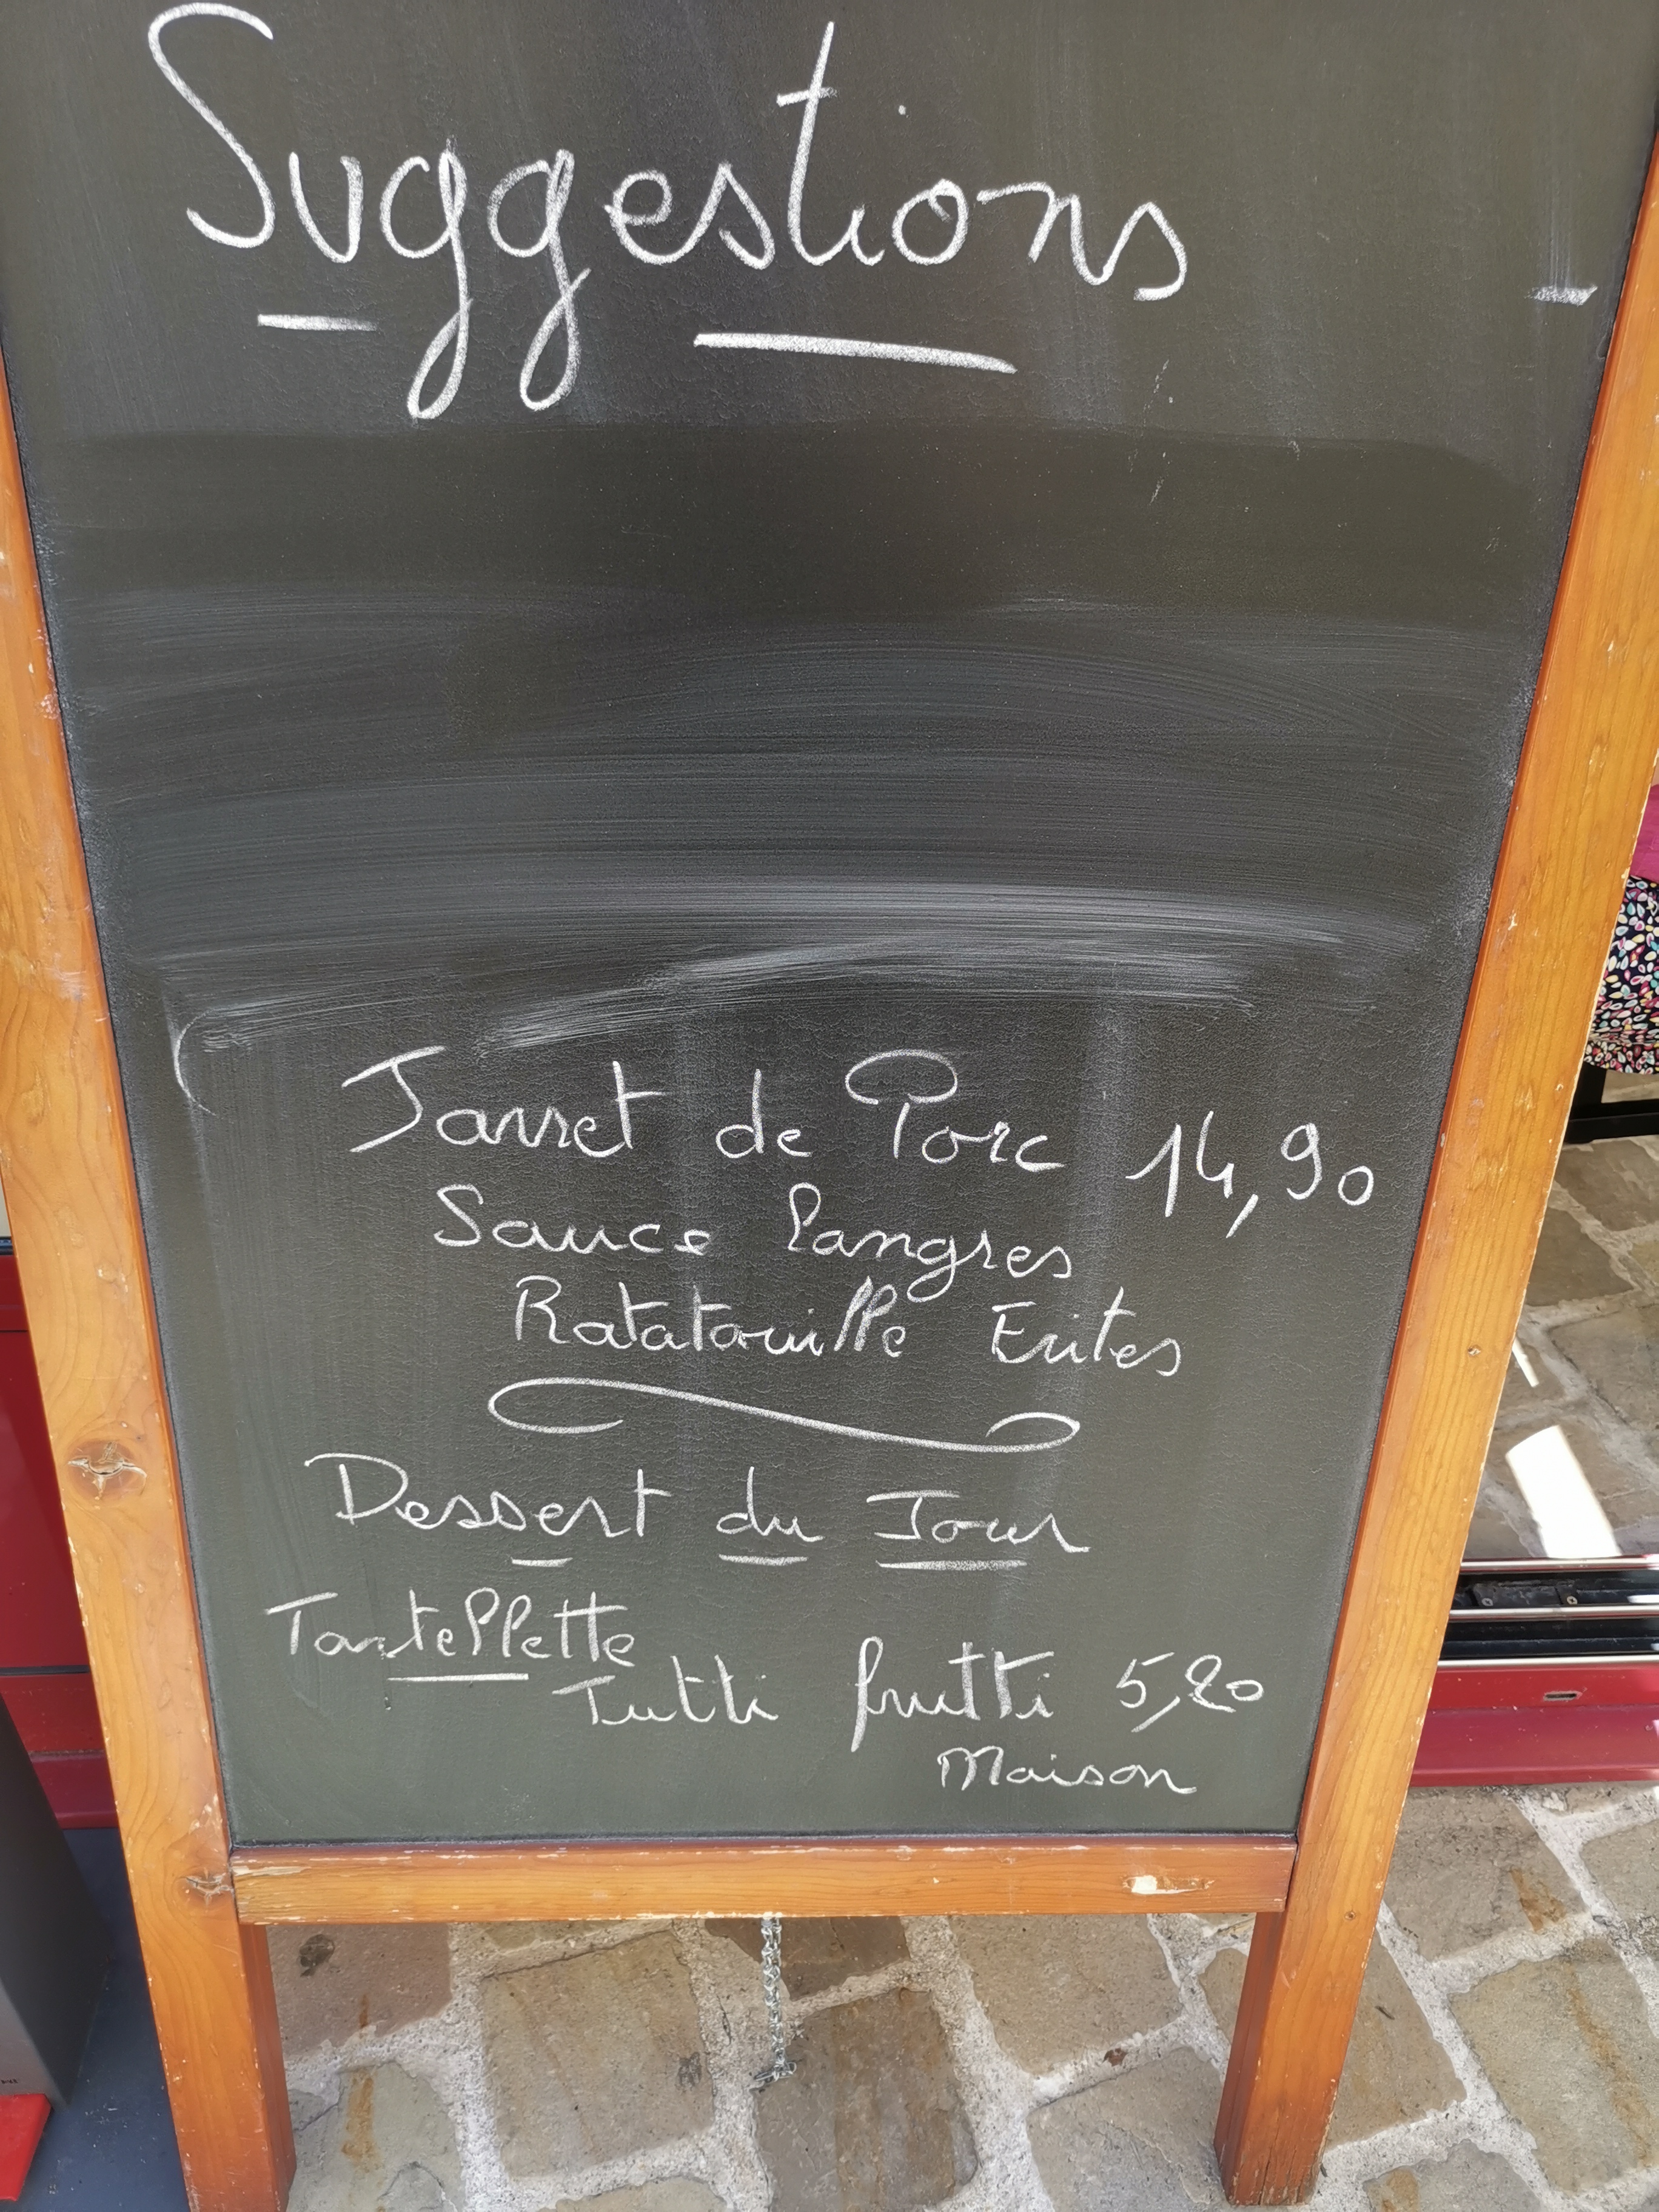 Suggestions
Jarret de Porc 14,90
Sauce Langres
Ratatouille Frites
Dessert du Jour
Tartellette
Tutti frutti 5,20
Maison